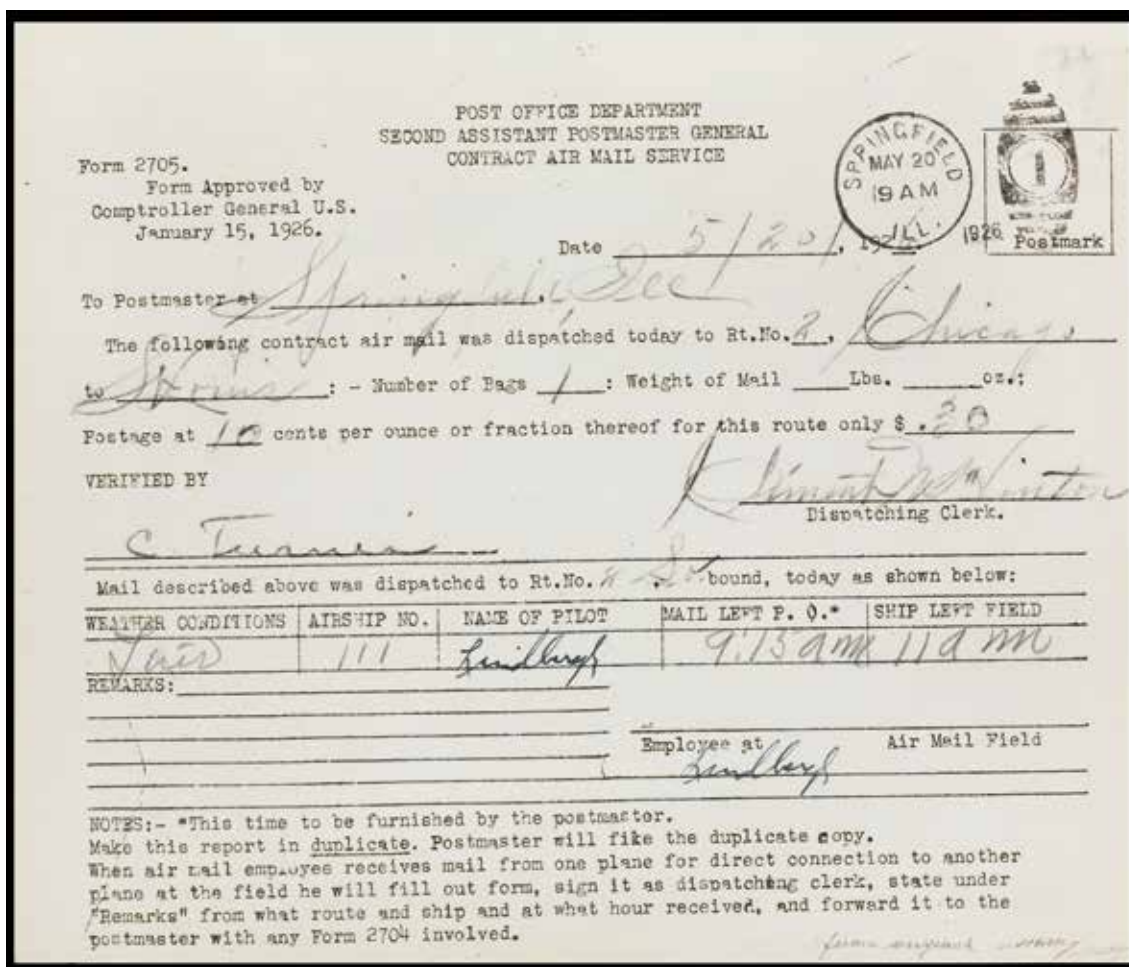 POST OFFICE DEPARTMENT
SECOND ASSISTANT POSTMASTER GENERAL
CONTRACT AIR MAIL SERVICE
SPRINGFIELD
MAY 20
9 AM
ILL.
1
1926
Postmark
Form 2705.
Form Approved by
Comptroller General U.S.
January 15, 1926.
Date 5/20/, 192
To Postmaster at Springfield, Ill
The following contract air mail was dispatched today to Rt.No. 2, Chicago
to St Louis : - Number of Bags 1 : Weight of Mail Lbs. oz.;
Postage at 10 cents per ounce or fraction thereof for this route only $ .20
VERIFIED BY
Dispatching Clerk.
C. Turner
Mail described above was dispatched to Rt.No. 2 . So bound, today as shown below:
WEATHER CONDITIONS AIRSHIP NO. NAME OF PILOT MAIL LEFT P. O.* SHIP LEFT FIELD
Fair 111 Lindbergh 9:15 am 11 a m
REMARKS:
Employee at Air Mail Field
Lindbergh
NOTES:- *This time to be furnished by the postmaster.
Make this report in duplicate. Postmaster will fike the duplicate copy.
When air mail employee receives mail from one plane for direct connection to another
plane at the field he will fill out form, sign it as dispatching clerk, state under
"Remarks" from what route and ship and at what hour received, and forward it to the
postmaster with any Form 2704 involved.